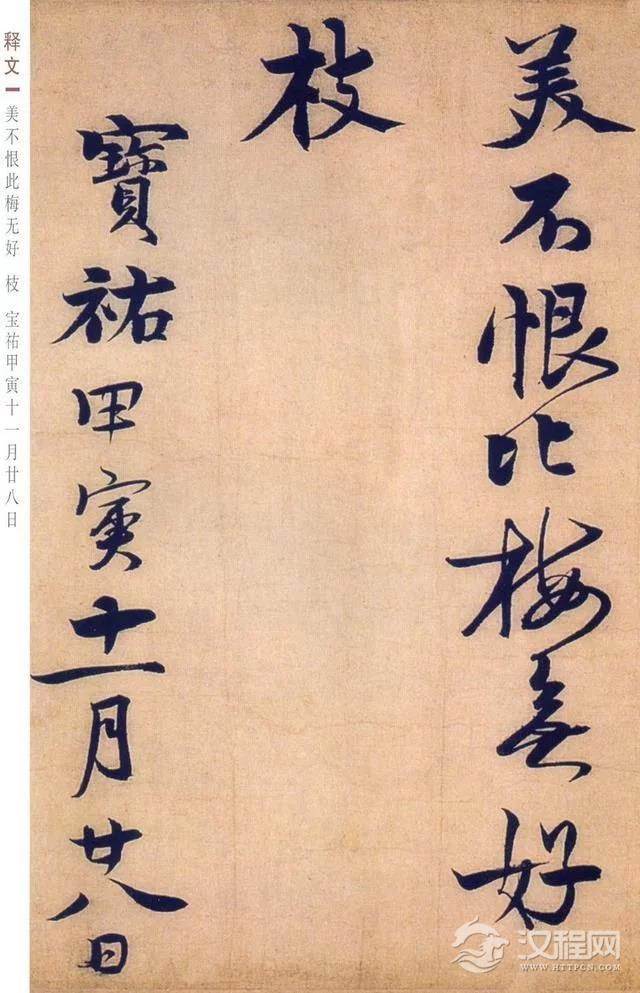 释文
美不恨此梅无好 枝 宝祐甲寅十一月廿八日
美不恨此梅無好
枝
寶祐甲寅十一月廿八日
汉程网
WWW.HTTPCN.COM